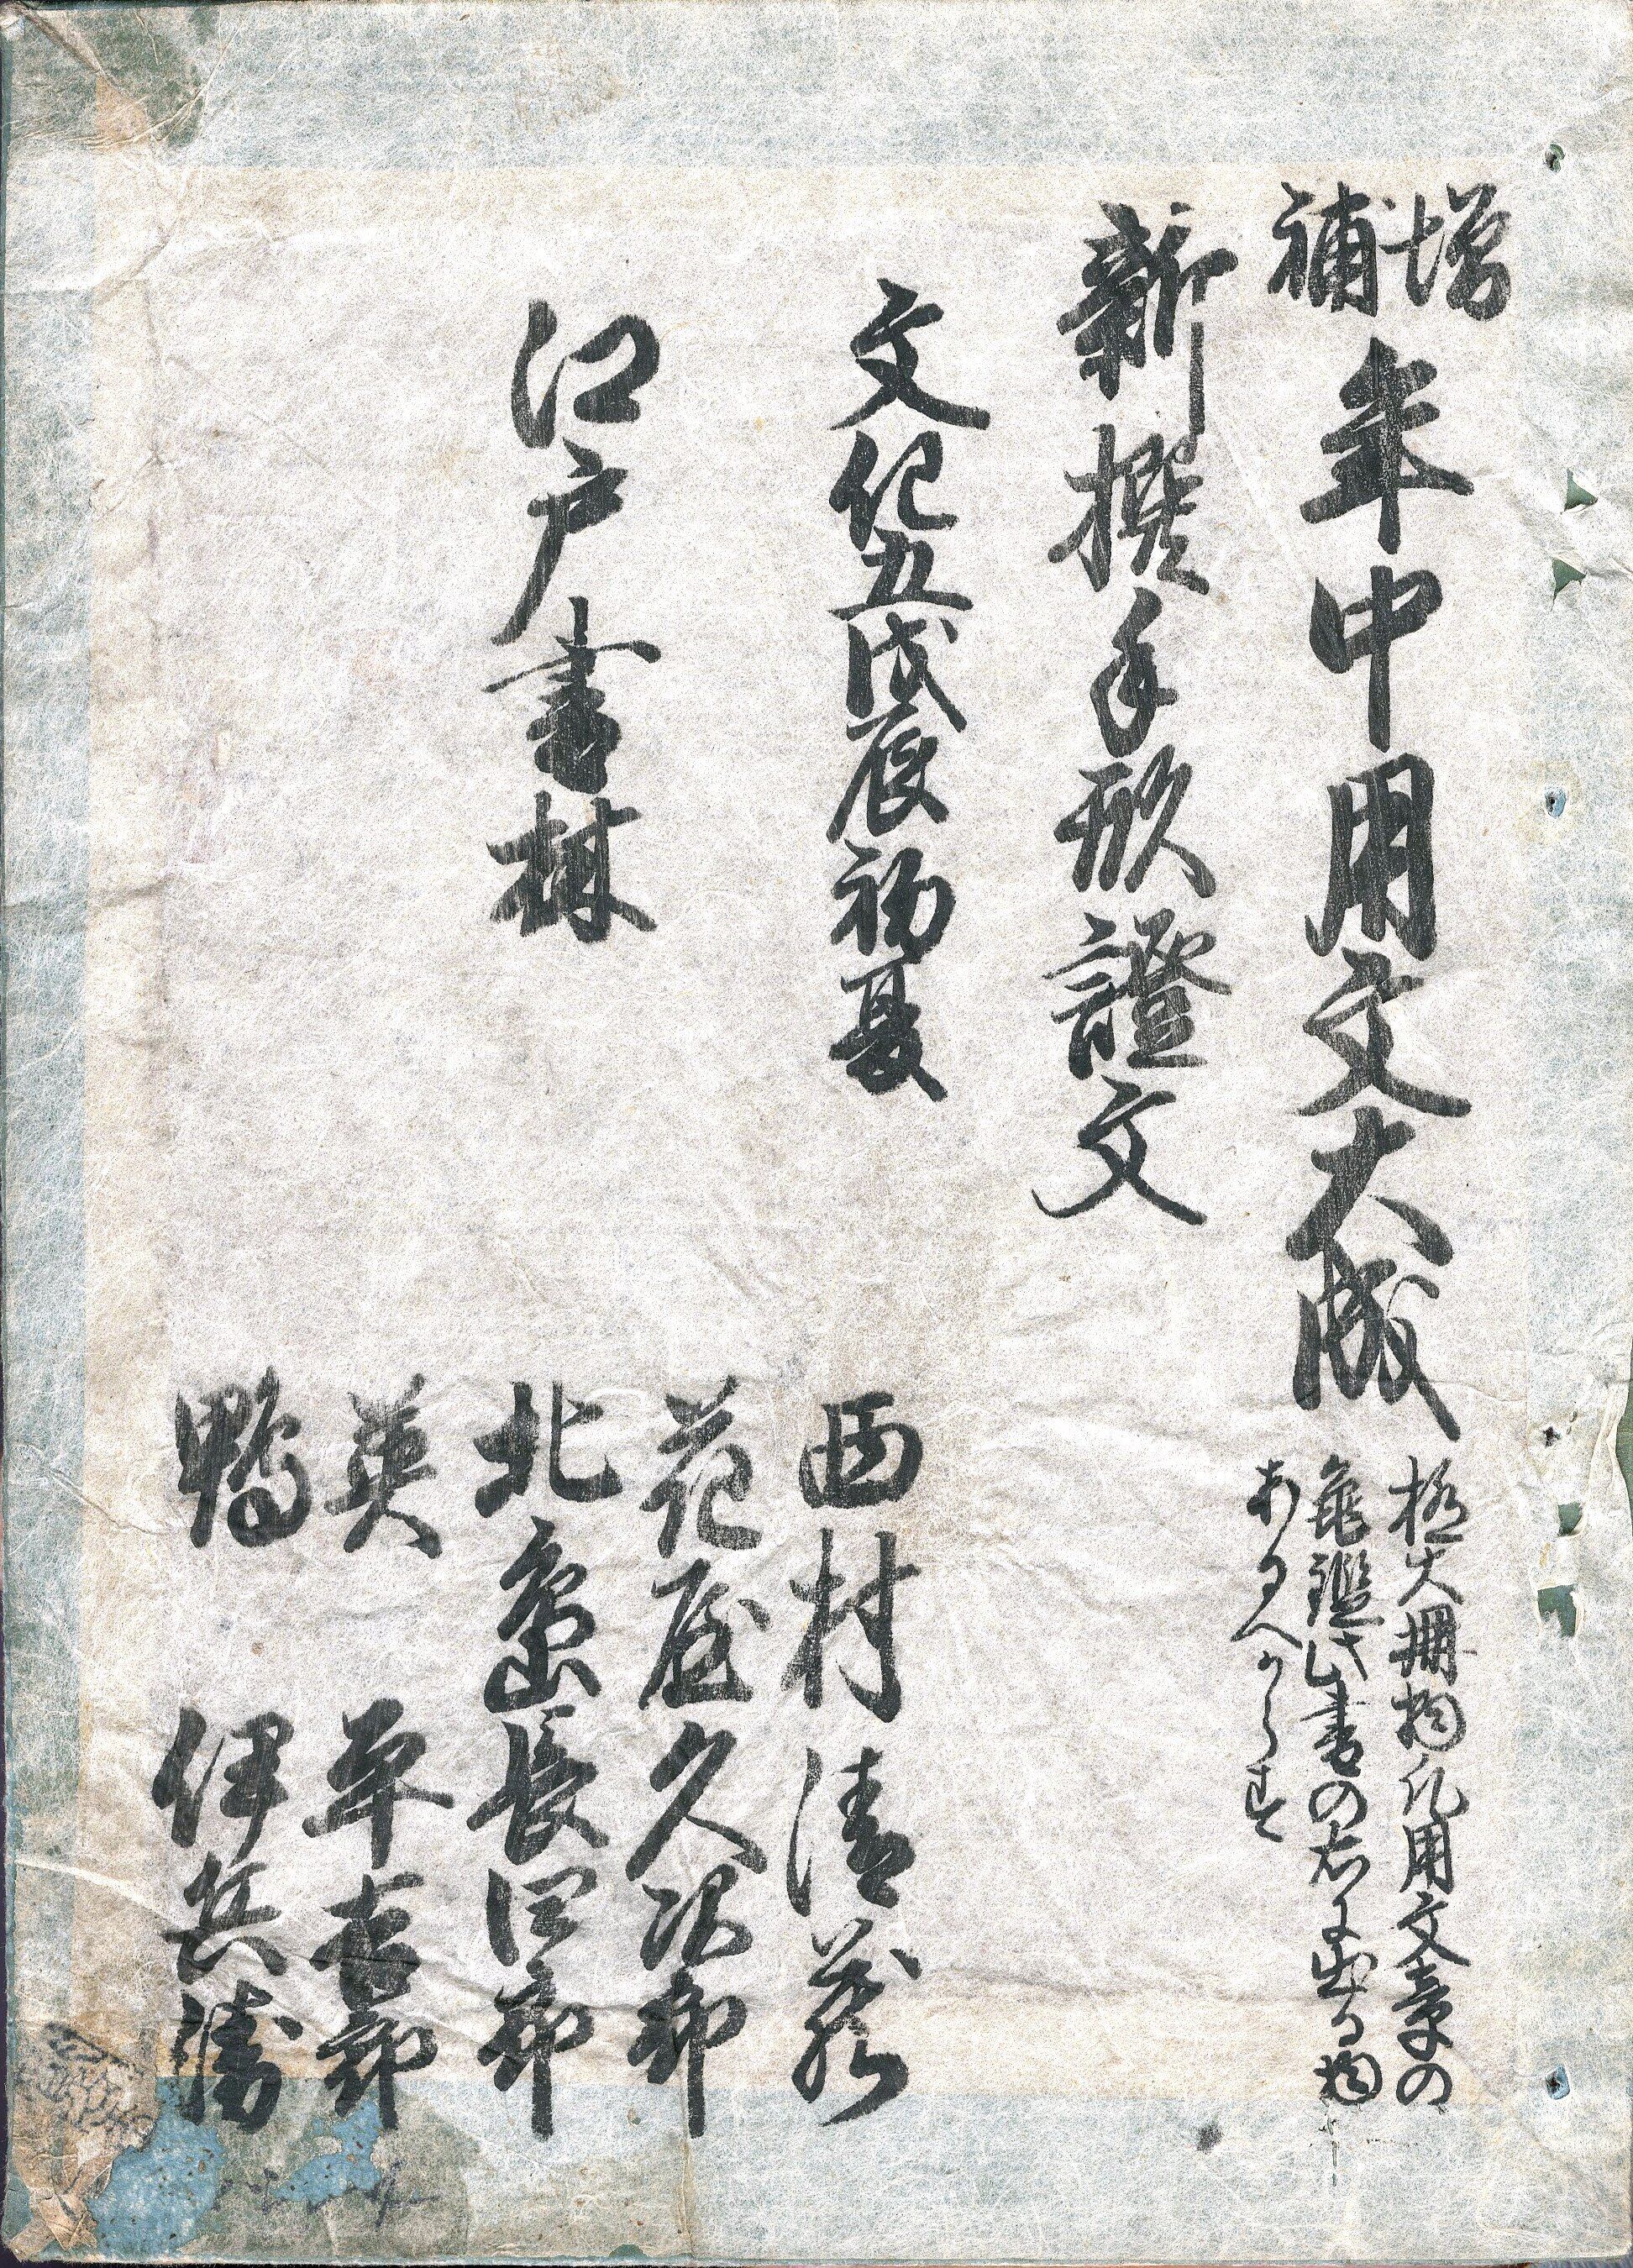 増補
年中用文大成
極大冊物凡用文章の
亀鑑此書の右に出る物
あるへからす
新撰手形證文
文化五戊辰初夏
江戸書林
西村清
花屋久次郎
北島長四郎
英平吉郎
鴨伊兵衛